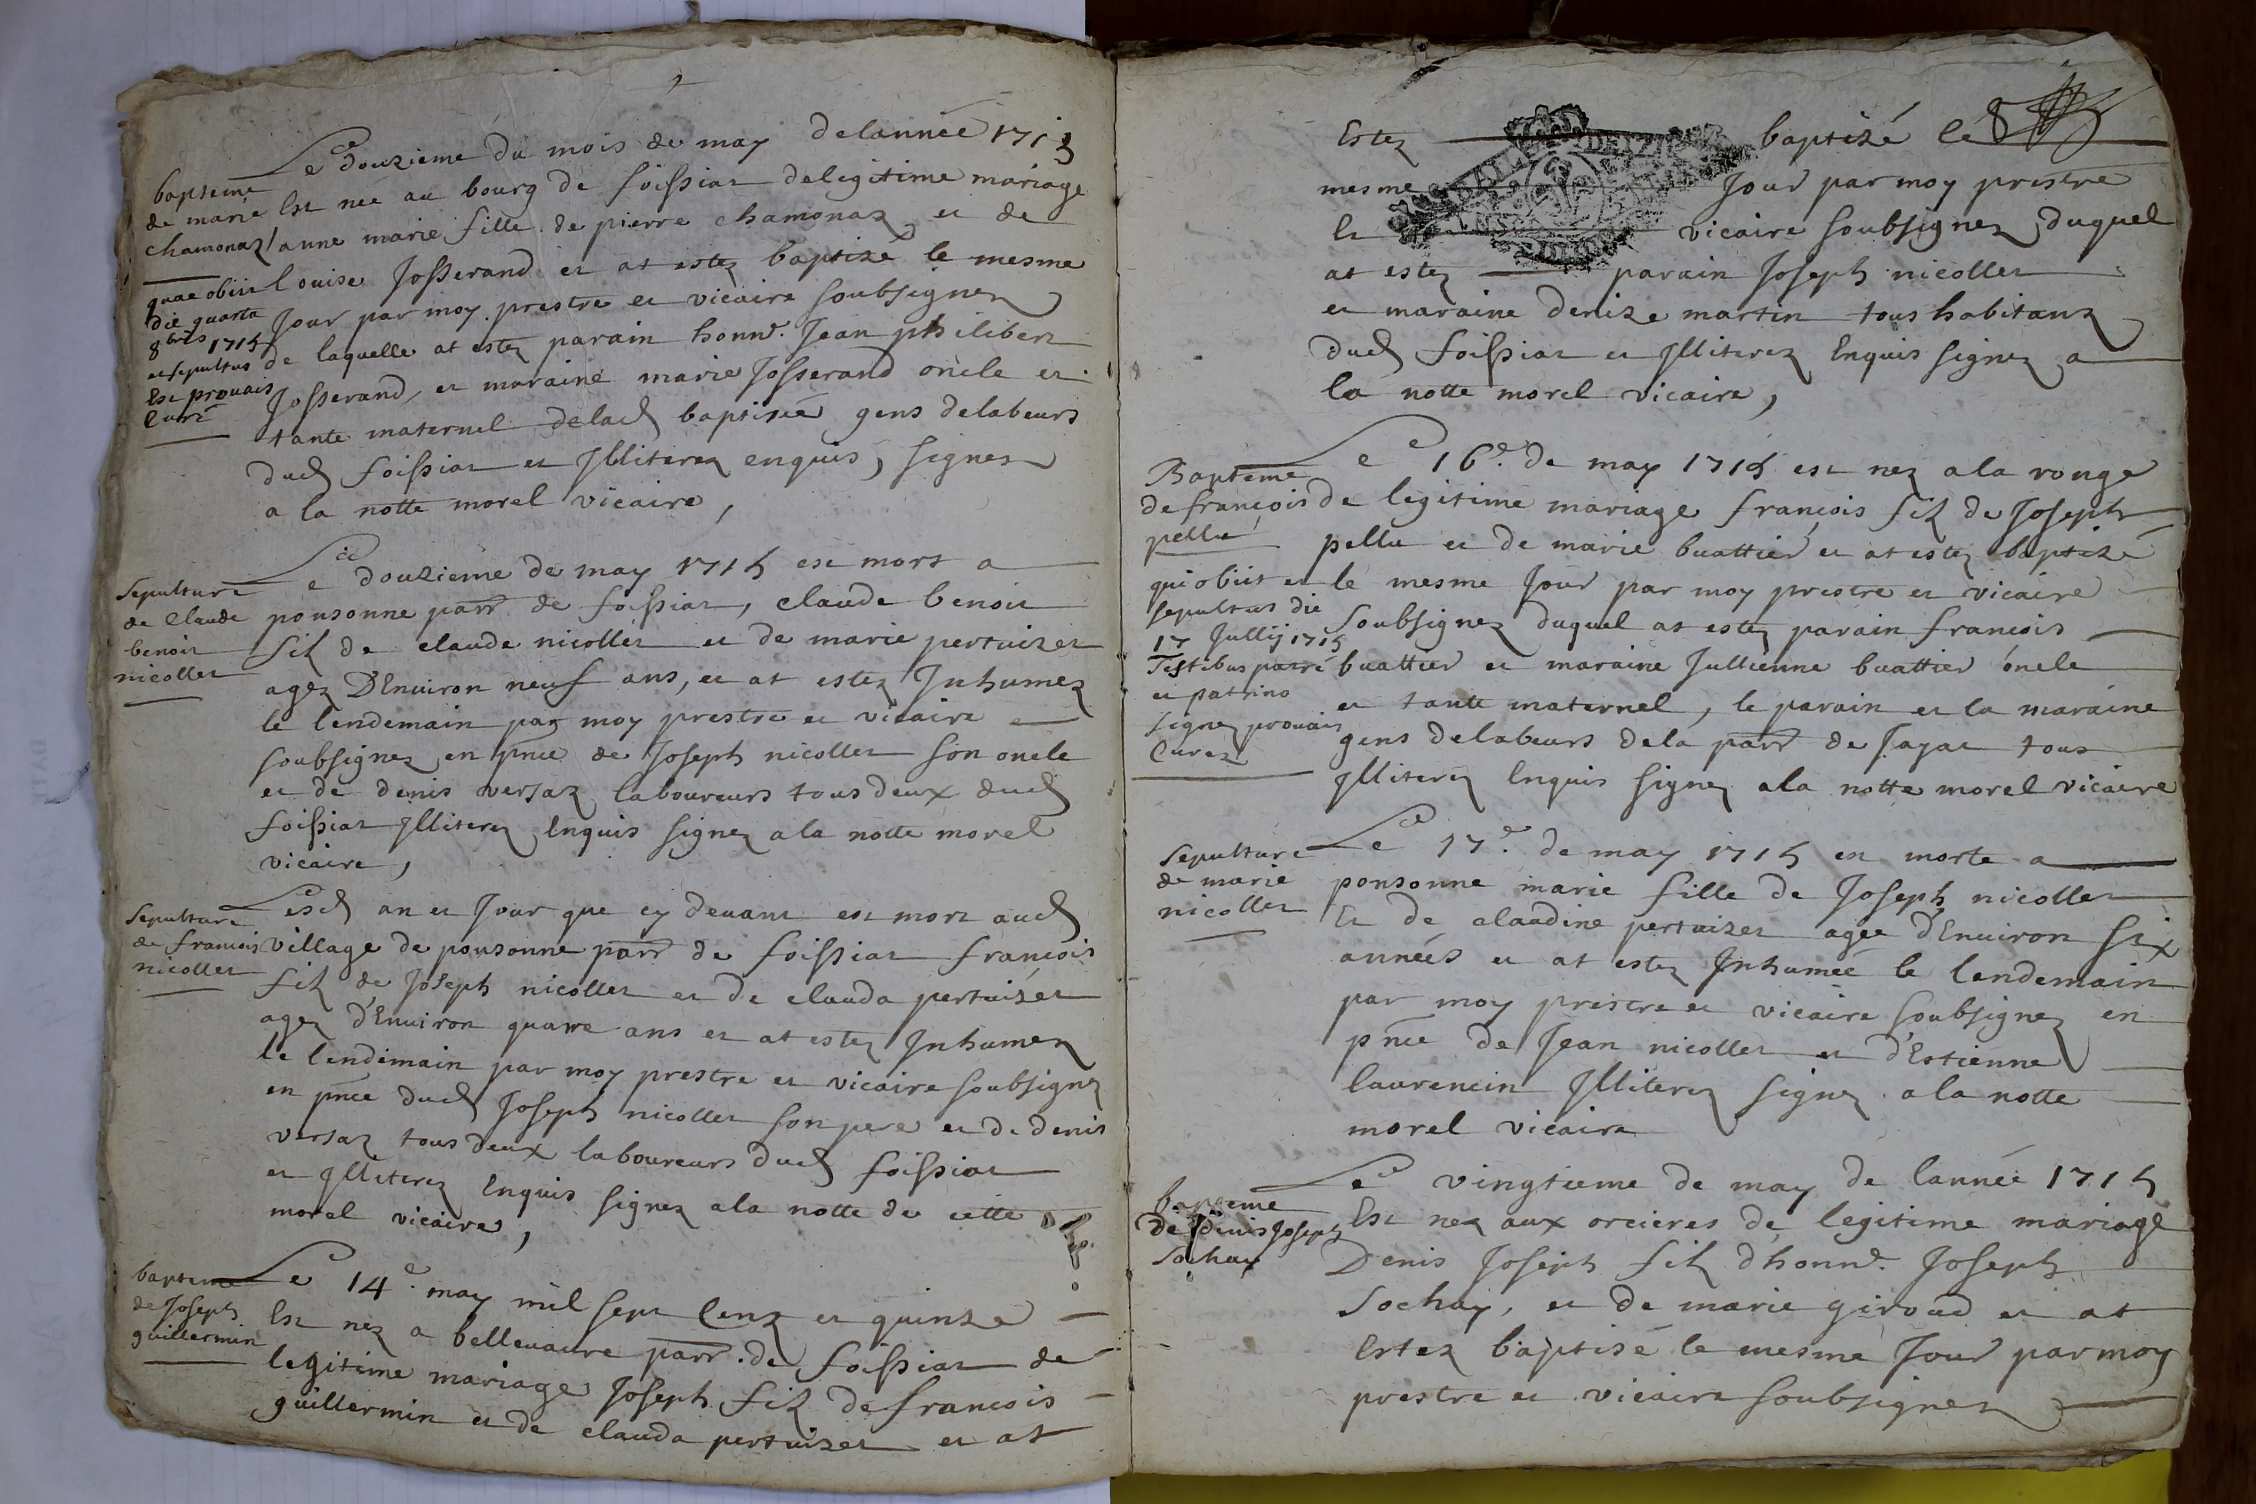 Ce douzieme du mois de may delannée 1715
bapteme
de marie
chamonaz
Est née au bourg de foissiat delegitime mariage
anne marie fille de pierre chamonaz et de
louise Josserand et at estez baptisé le mesme
Jour par moy prestre et vicaire soubsignez
de laquelle at estez parain honn.e Jean philibert
Josserand, et maraine marie Josserand oncle et
tante maternel delad baptisée gens delabeurs
dud foissiat et Jlliterez enquis, signez
a la notte morel vicaire,
quae obiit
die quarta
8bris 1715
et sepultus
Est prouais
Curé
Sepulture
de Claude
benoit
nicollet
Ce douzieme de may 1715 est mort a
ponsonne parr de foissiat, claude benoit
fils de claude nicollet et de marie pertuizet
agez D'Enuiron neuf ans, et at estez Inhumez
le lendemain par moy prestre et vicaire
soubsignez en pnce de Joseph nicollet son oncle
et de denis versaz laboureurs tous deux dud
foissiat Jlliterez Enquis signez a la notte morel
vicaire,
Sepulture
de francois
nicollet
Lesd an et Jour que cy deuant est mort aud
village de ponsonne parr de foissiat francois
fils de Joseph nicollet et de clauda pertuizet
agez d'Enuiron quatre ans et at estez Inhumez
le lendemain par moy prestre et vicaire soubsignez
en pnce dud Joseph nicollet son pere et de denis
versaz tous deux laboureurs dud foissiat
et Jlliterez Enquis signez a la notte de cette
morel vicaire,
bapteme
de Joseph
guillermin
Ce 14.e may mil sept Cent et quinze
Est nez a belleuaure parr. de foissiat de
legitime mariage Joseph fils de francois
guillermin et de clauda pertuizet et at
Estez baptizé le
mesme Jour par moy prestre
Et vicaire soubsignez duquel
at estez parain Joseph nicollet
et maraine denize martin tous habitans
dud foissiat et Jlliterez Enquis signez a
la notte morel vicaire,
Bapteme
de françois
pellu
qui obiit et
sepultus die
17 Jullij 1715
Testibus patre
et patrino
signez prouais
Curez
Ce 16.e de may 1715 est nez a la rouge
de legitime mariage françois fils de Joseph
pellu et de marie buattier et at estez baptizé
le mesme Jour par moy prestre et vicaire
Soubsignez duquel at estez parain francois
buattier et maraine Jullienne buattier oncle
et tante maternel, le parain et la maraine
gens delabeurs dela parr de Jayat tous
Jlliterez Enquis signez a la notte morel vicaire
Sepulture
de marie
nicollet
Ce 17.e de may 1715 est morte a
ponsonne marie fille de Joseph nicollet
Et de claudine pertuizet agée d'Enuiron six
années et at estez Inhumée le lendemain
par moy prestre et vicaire soubsignez en
pnce de Jean nicollet et d'Estienne
laurencin Jlliterez signez a la notte
morel vicaire
bapteme
de denis Joseph
Sochay
Ce vingtieme de may de lannée 1715
Est nez aux orcieres de legitime mariage
Denis Joseph fils d'honn.e Joseph
Sochay, et de marie giroud et at
Estez baptisé le mesme Jour par moy
prestre et vicaire soubsignez